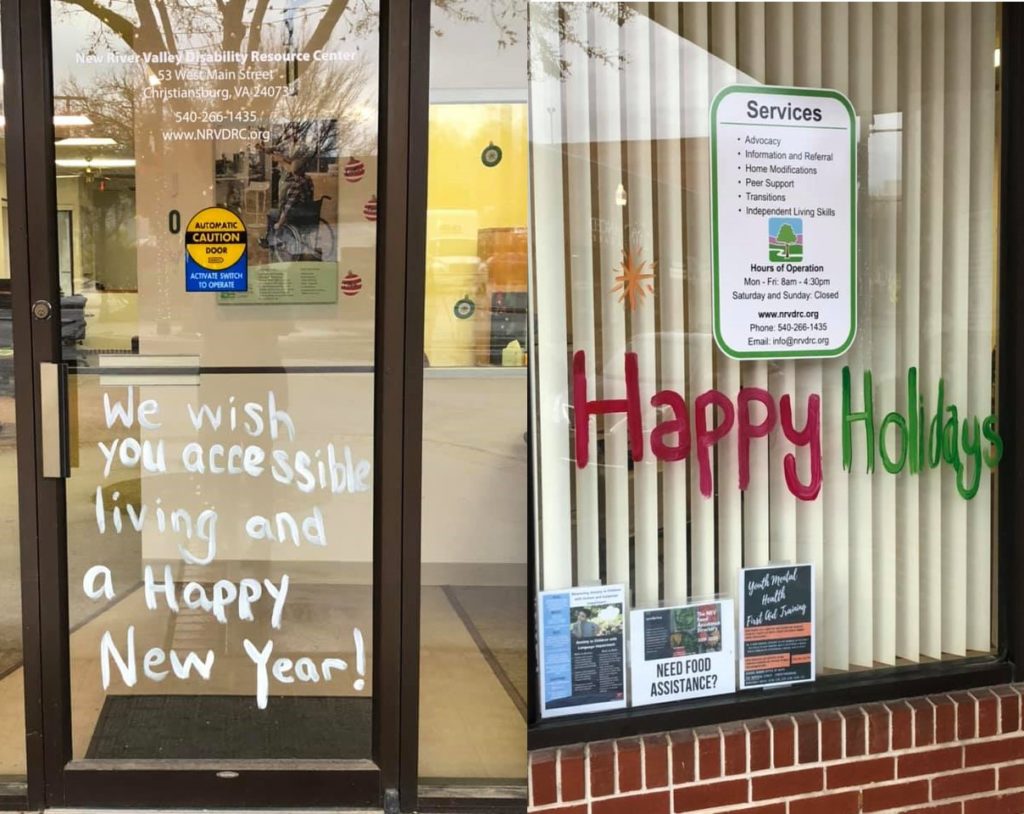 New River Valley Disability Resource Center
53 West Main Street
Christiansburg, VA 24073
540-266-1435
www.NRVDRC.org
AUTOMATIC
CAUTION
DOOR
ACTIVATE SWITCH
TO OPERATE
We wish
you accessible
living and
a Happy
New Year!
Services
• Advocacy
• Information and Referral
• Home Modifications
• Peer Support
• Transitions
• Independent Living Skills
Hours of Operation
Mon - Fri: 8am - 4:30pm
Saturday and Sunday: Closed
www.nrvdrc.org
Phone: 540-266-1435
Email: info@nrvdrc.org
Happy Holidays
Anxiety in Children with
Language Impairment
The NRV
Food
Assistance
Directory
NEED FOOD
ASSISTANCE?
Youth Mental
Health
First Aid Training